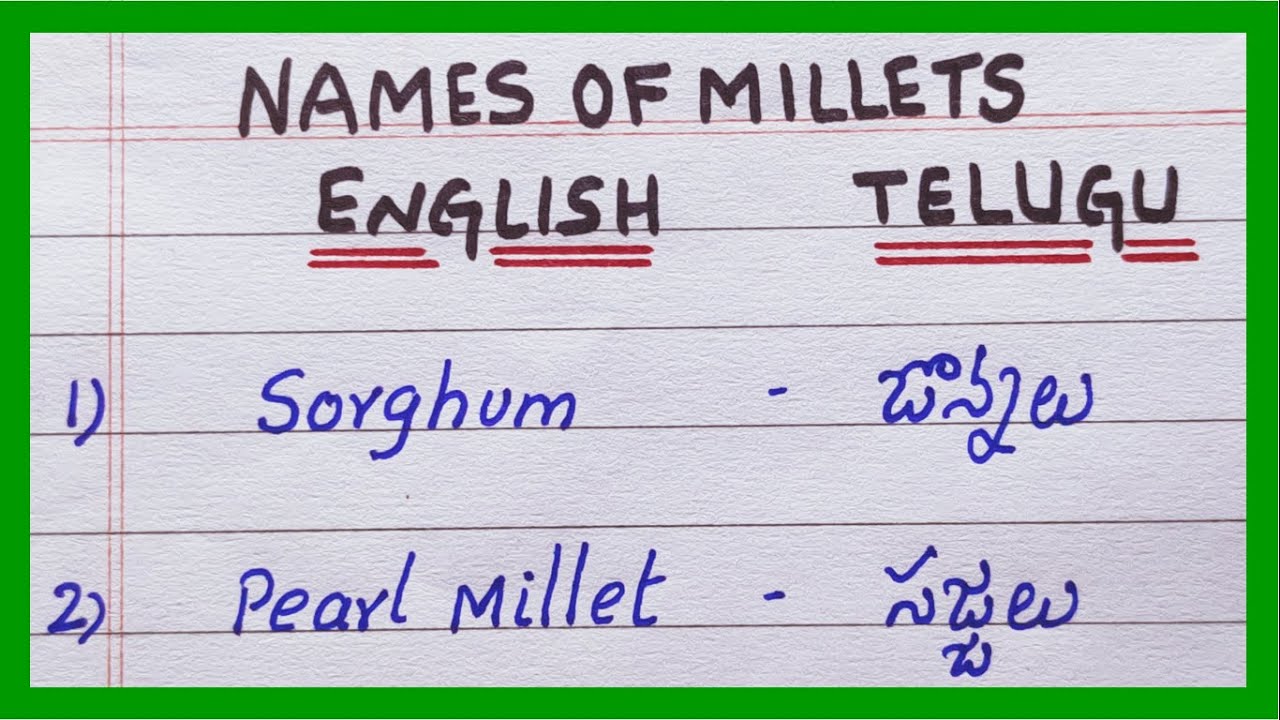 NAMES OF MILLETS
ENGLISH TELUGU
1) Sorghum - జొన్నలు
2) Pearl Millet - సజ్జలు